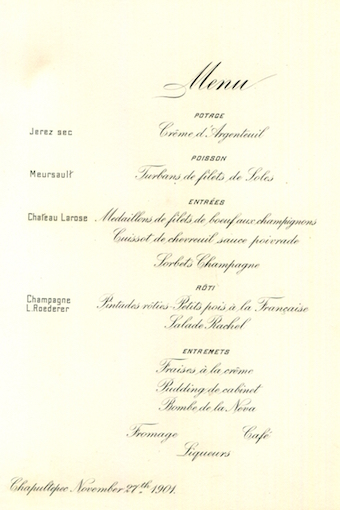 Menu
POTAGE
Jerez sec Crême d'Argenteuil
POISSON
Meursault Turbans de filets de Soles
ENTRÉES
Chateau Larose Medaillons de filets de boeuf aux champignons
Cuissot de chevreuil sauce poivrade
Sorbets Champagne
RÔTI
Champagne L. Roederer Pintades rôties Petits pois à la Française
Salade Rachel
ENTREMETS
Fraises à la crême
Pudding de cabinet
Bombe de la Nova
Fromage Café
Liqueurs
Chapultepec November 27th 1901.